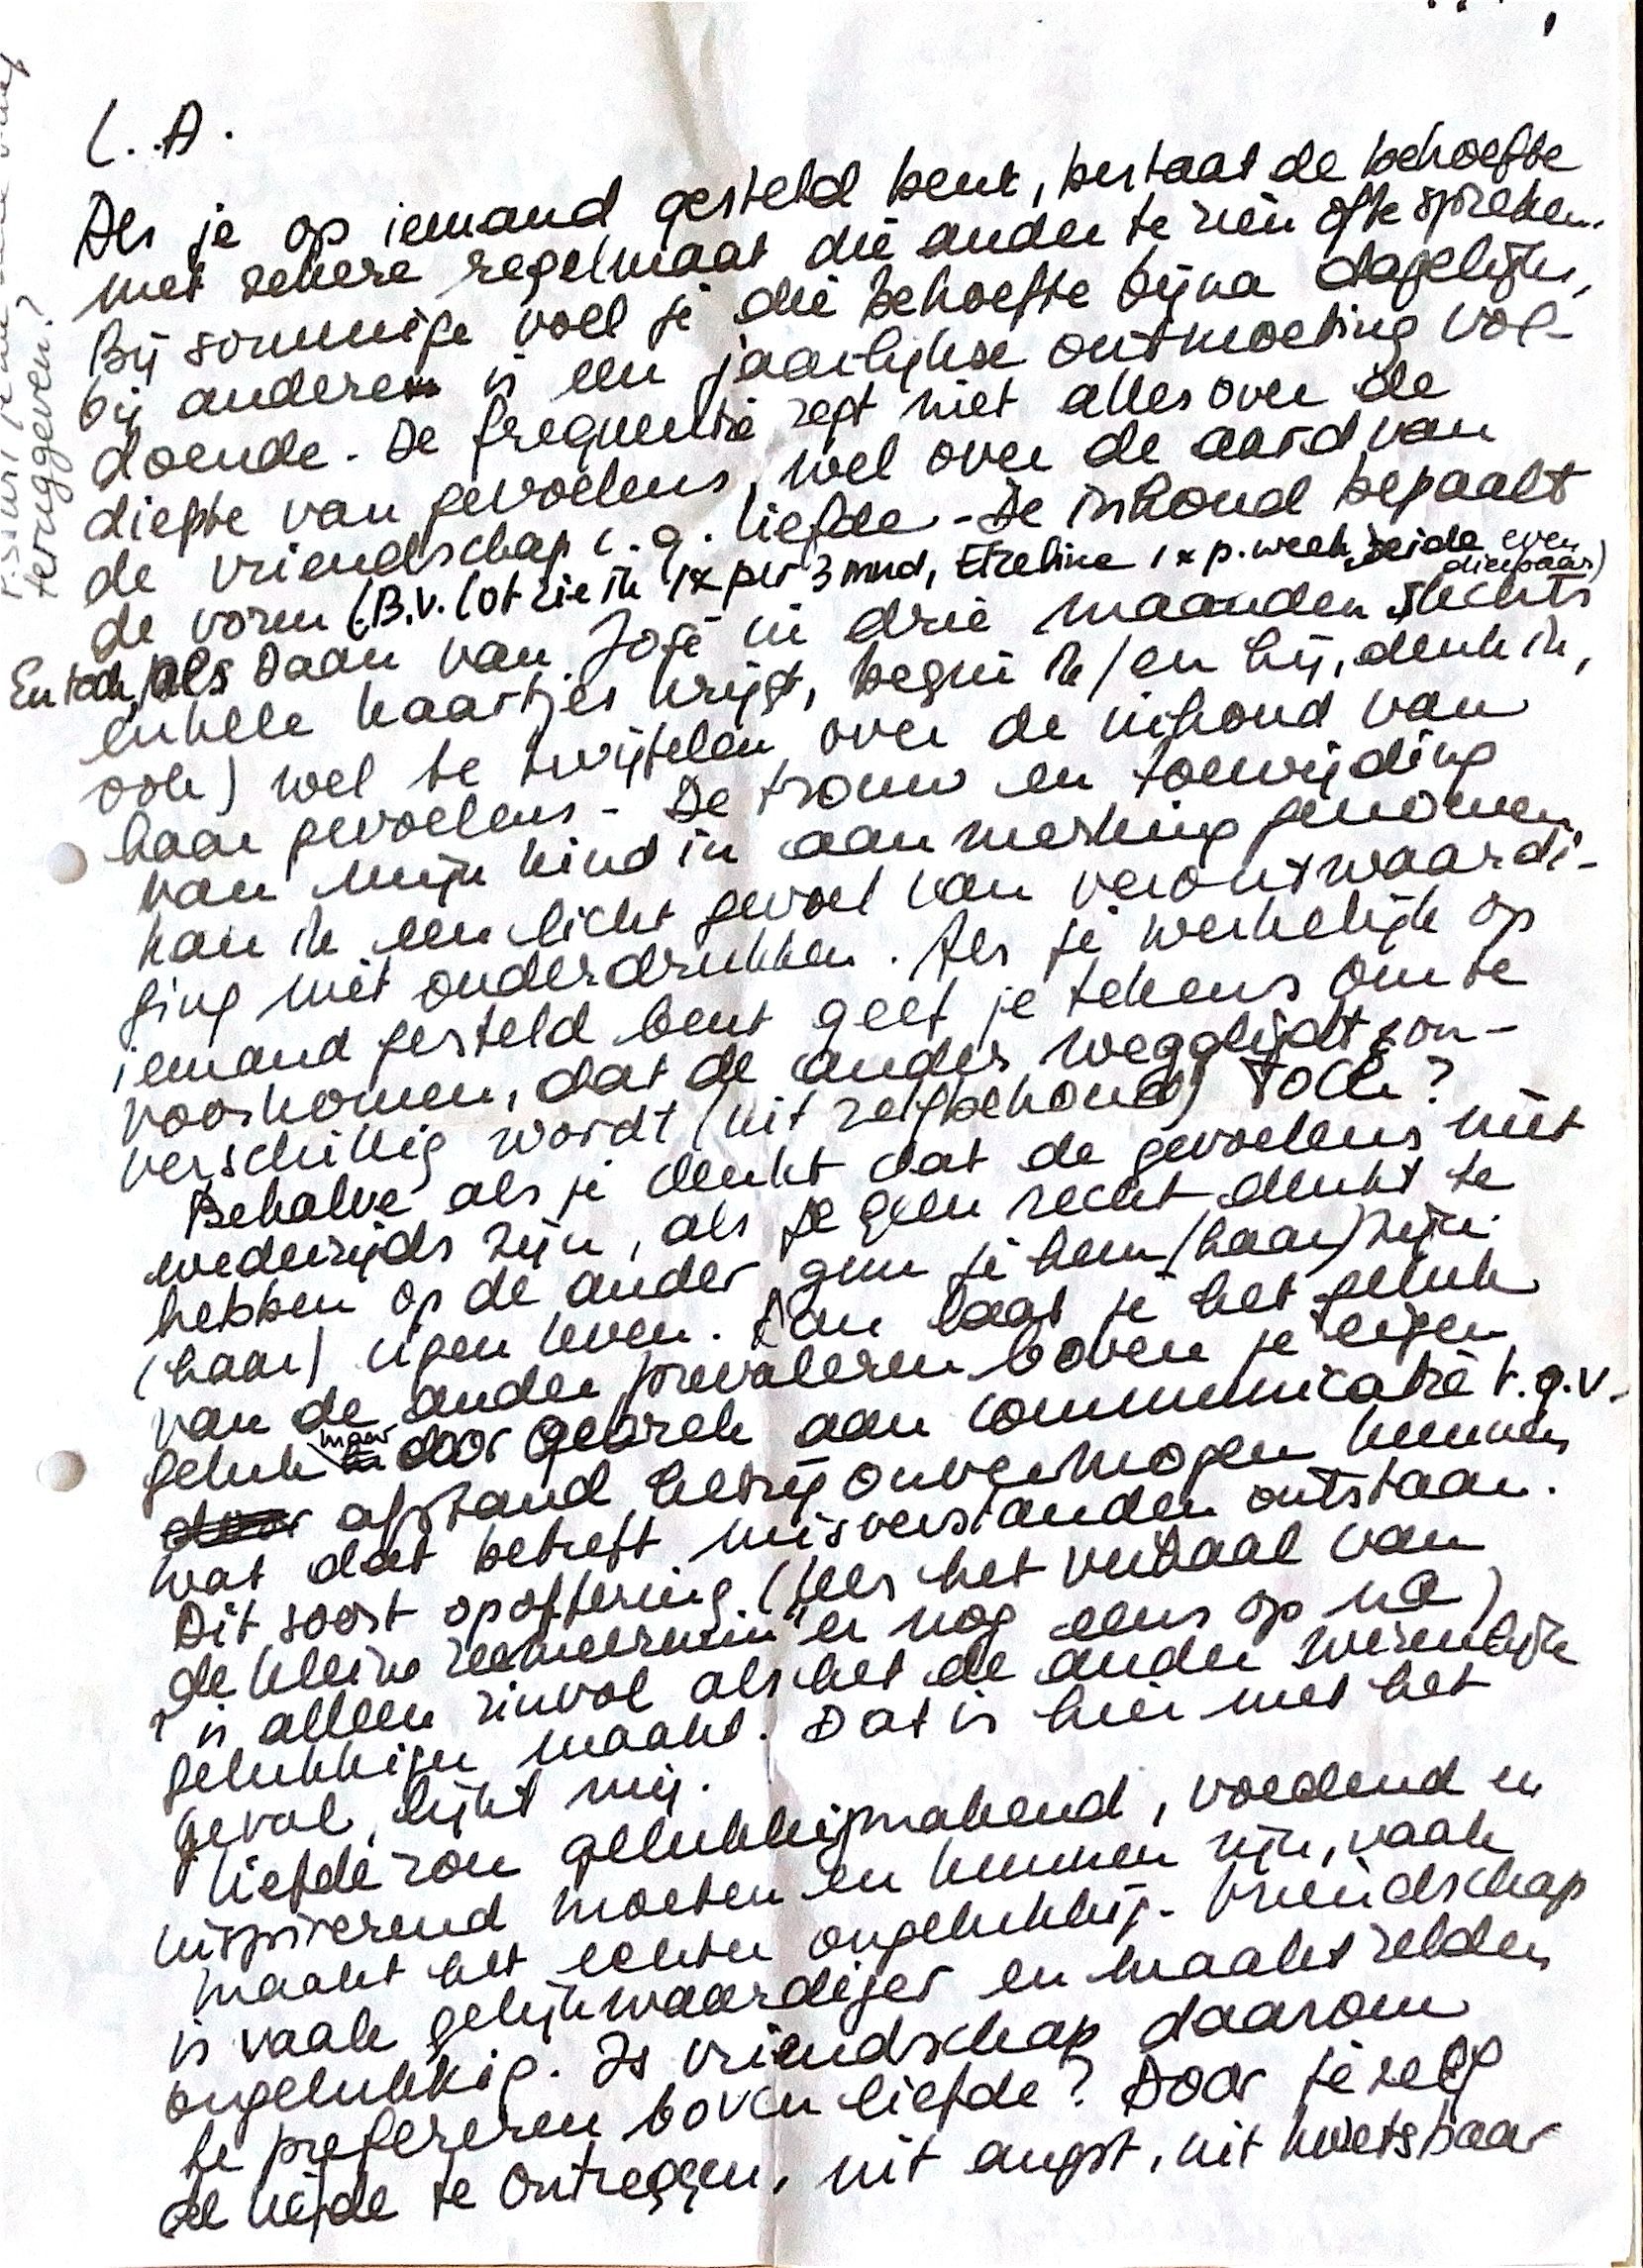 L.A.
Als je op iemand gesteld bent, bestaat de behoefte
met zekere regelmaat die ander te zien of te spreken.
Bij sommige voel je die behoefte bijna dagelijks,
bij andere is een jaarlijkse ontmoeting vol-
doende. De frequentie zegt niet alles over de
diepte van gevoelens, wel over de aard van
de vriendschap c.q. liefde - De inhoud bepaalt
de vorm (B.v. Lot zie ik 1x per 3 mnd, 1x p. week, beide even dierbaar)
En toch, als Daan van José in drie maanden slechts
enkele kaartjes krijgt, begin ik (en hij, denk ik,
ook) wel te twijfelen over de inhoud van
haar gevoelens - De trouw en toewijding
van mijn kind in aanmerking genomen
kan ik een licht gevoel van verontwaardi-
ging niet onderdrukken. Als je werkelijk op
iemand gesteld bent geef je tekens om te
voorkomen, dat de ander wegglijdt, on-
verschillig wordt (uit zelfbehoud) Toch?
Behalve als je denkt dat de gevoelens niet
wederzijds zijn, als je geen recht denkt te
hebben op de ander, gun je hem (haar) zijn
(haar) eigen leven. Dan laat je het geluk
van de ander prevaleren boven je eigen
geluk maar door gebrek aan communicatie t.g.v.
afstand hetzij onvermogen kunnen
wat dat betreft misverstanden ontstaan.
Dit soort opoffering (lees het verhaal van
de kleine zeemeermin" er nog eens op na)
is alleen zinvol als het de ander wezenlijk
gelukkiger maakt. Dat is hier niet het
geval, lijkt mij.
Liefde zou gelukkigmakend, voedend en
inspirerend moeten en kunnen zijn, vaak
maakt het echter ongelukkig. Vriendschap
is vaak gelijkwaardiger en maakt zelden
ongelukkig. Is vriendschap daarom
te prefereren boven liefde? Door jezelf
de liefde te ontzeggen, uit angst, uit kwetsbaar
teruggeven?